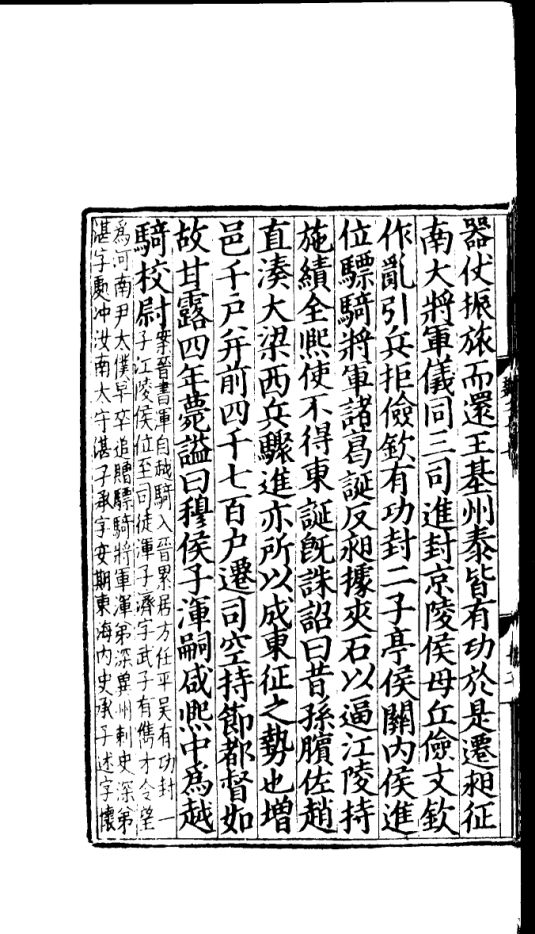 器仗振旅而還王基州泰皆有功於是遷昶征
南大將軍儀同三司進封京陵侯毋丘儉文欽
作亂引兵拒儉欽有功封二子亭侯關內侯進
位驃騎將軍諸葛誕反昶據夾石以逼江陵持
施績全熙使不得東誕旣誅詔曰昔孫臏佐趙
直湊大梁西兵驟進亦所以成東征之勢也增
邑千戶并前四千七百戶遷司空持節都督如
故甘露四年薨謚曰穆侯子渾嗣咸熙中爲越
騎校尉
案晉書渾自越騎入晉累居方任平吳有功封一
子江陵侯位至司徒渾子濟字武子有儁才令望
爲河南尹太僕早卒追贈驃騎將軍渾弟深冀州刺史深弟
湛字處冲汝南太守湛子承字安期東海內史承子述字懷